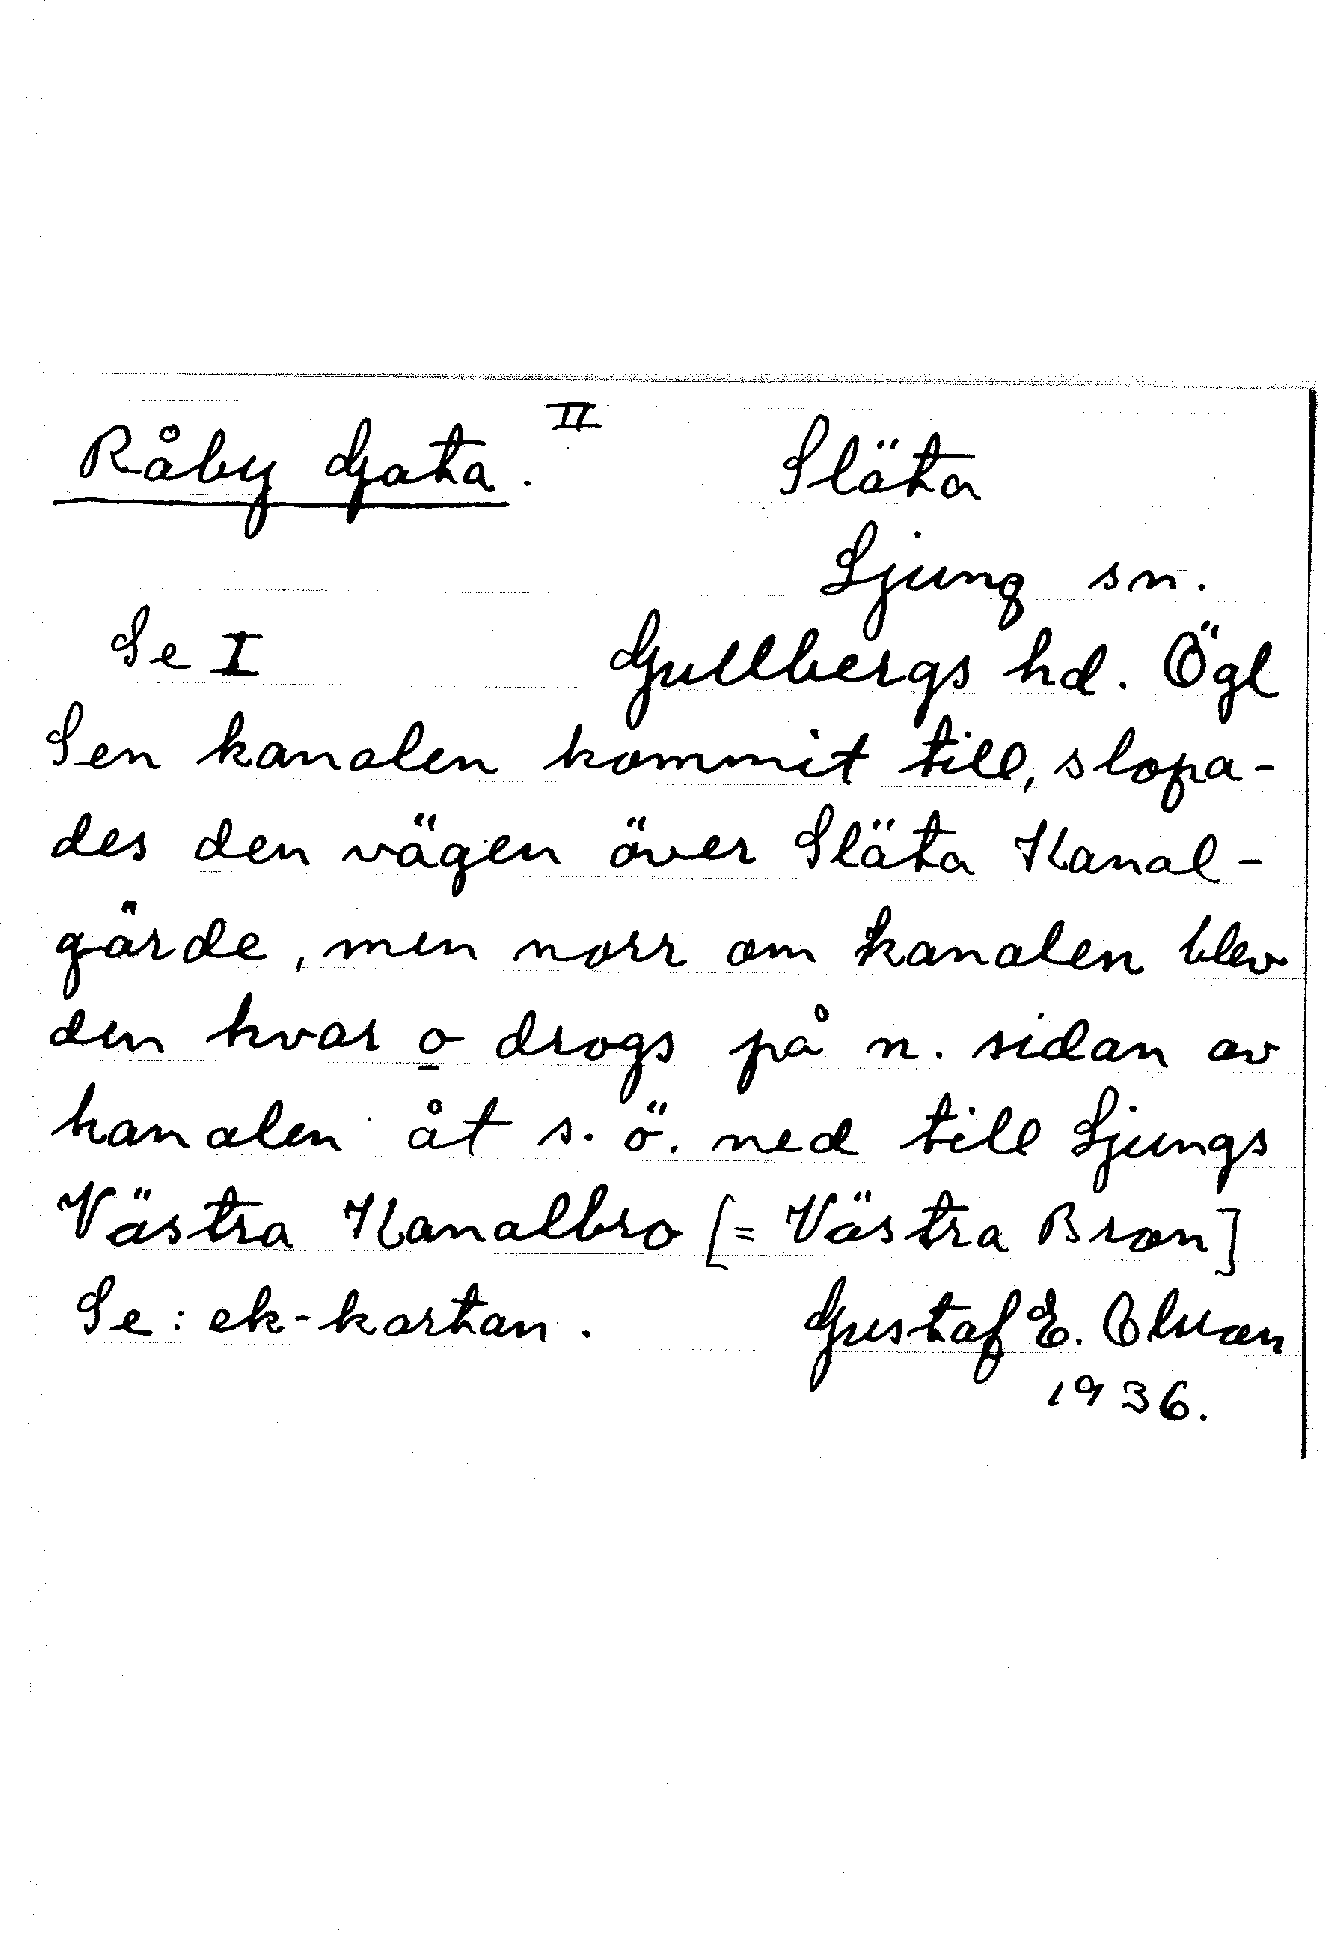 Råby Gata. II
Släta
Ljung sn.
Se I
Gullbergs hd. Ögl
Sen kanalen kommit till, slopa-
des den vägen över Släta Kanal-
gärde, men norr om kanalen blev
den kvar o drogs på n. sidan av
kanalen åt s. ö. ned till Ljungs
Västra Kanalbro [= Västra Bron]
Se: ek-kartan.
Gustaf E.
1936.